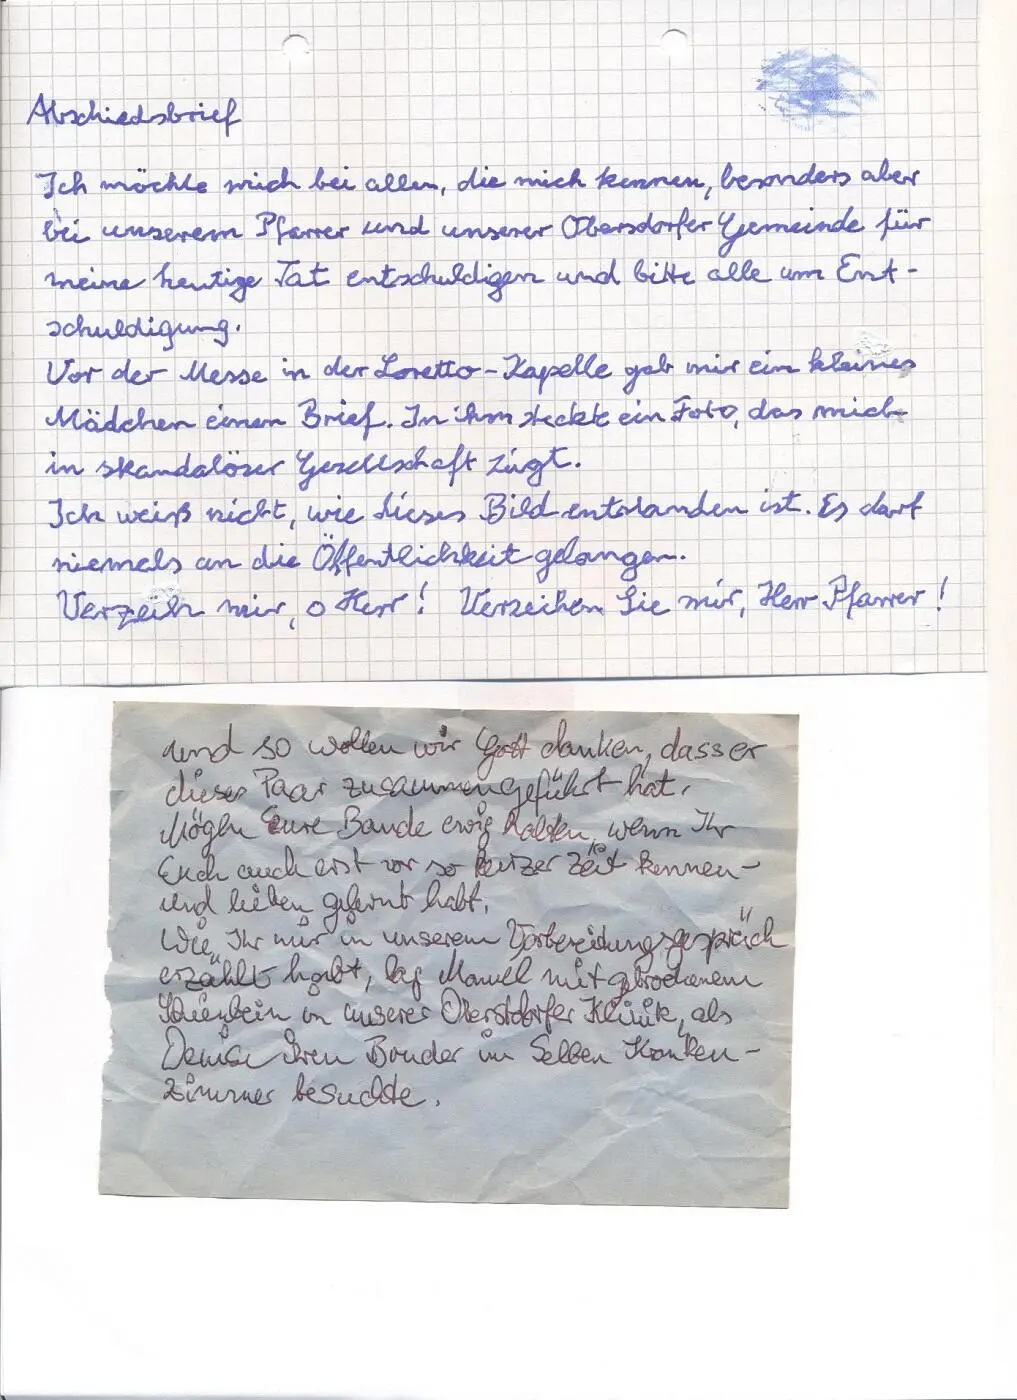 Abschiedsbrief
Ich möchte mich bei allen, die mich kennen, besonders aber
bei unserem Pfarrer und unserer Obersdorfer Gemeinde für
meine heutige Tat entschuldigen und bitte alle um Ent-
schuldigung.
Vor der Messe in der Loretto-Kapelle gab mir ein kleines
Mädchen einen Brief. In ihm steckte ein Foto, das mich
in skandalöser Gesellschaft zeigt.
Ich weiß nicht, wie dieses Bild entstanden ist. Es darf
niemals an die Öffentlichkeit gelangen.
Verzeih mir, o Herr! Verzeihen Sie mir, Herr Pfarrer!
und so wollen wir Gott danken, dass er
dieses Paar zusammengeführt hat.
Mögen Eure Bande ewig halten, wenn Ihr
Euch auch erst vor so kurzer Zeit kennen-
und lieben gelernt habt.
Wie Ihr mir in unserem Vorbereitungsgespräch
erzählt habt, lag Manuel mit gebrochenem
Schienbein in unserer Oberstdorfer Klinik, als
Denise Ihren Bruder im Selben Kranken-
zimmer besuchte.